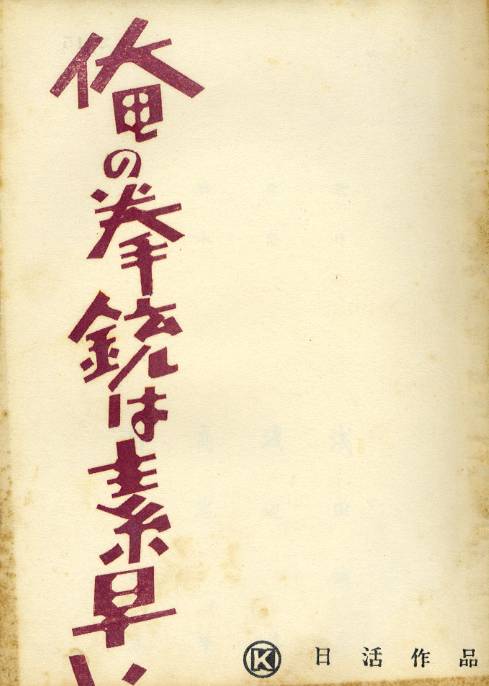 俺の拳銃は素早い
K 日活作品